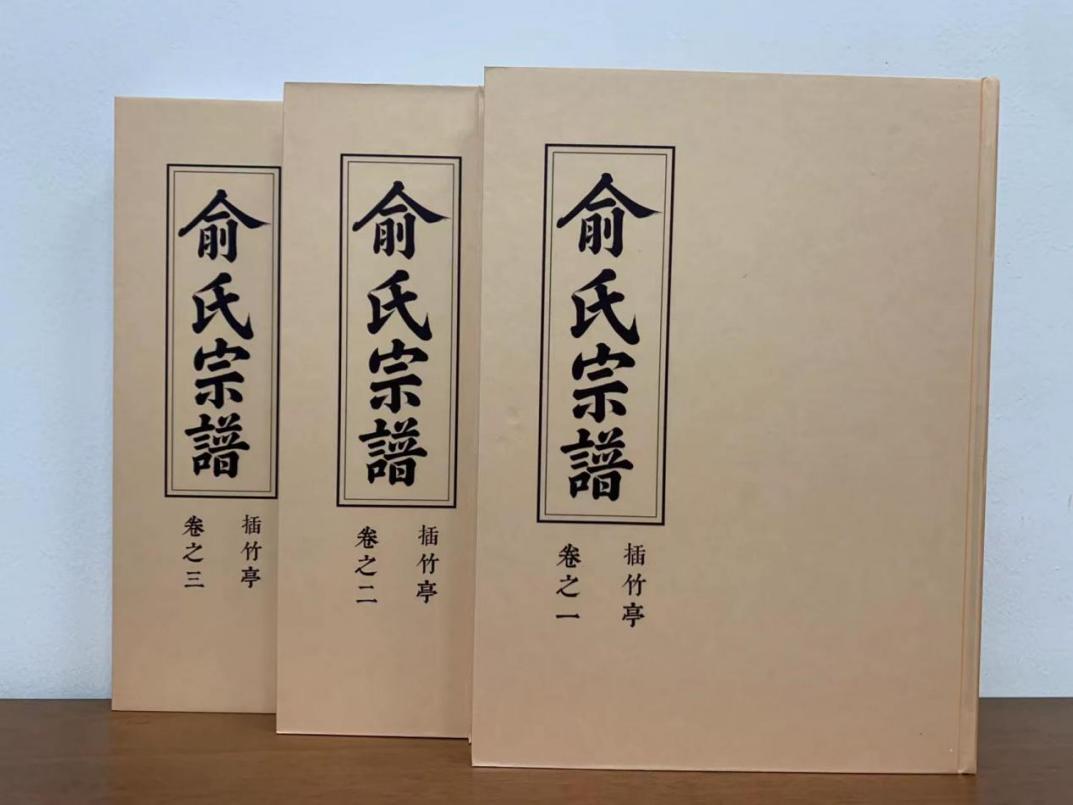 俞氏宗譜
插竹亭
卷之三
俞氏宗譜
插竹亭
卷之二
俞氏宗譜
插竹亭
卷之一